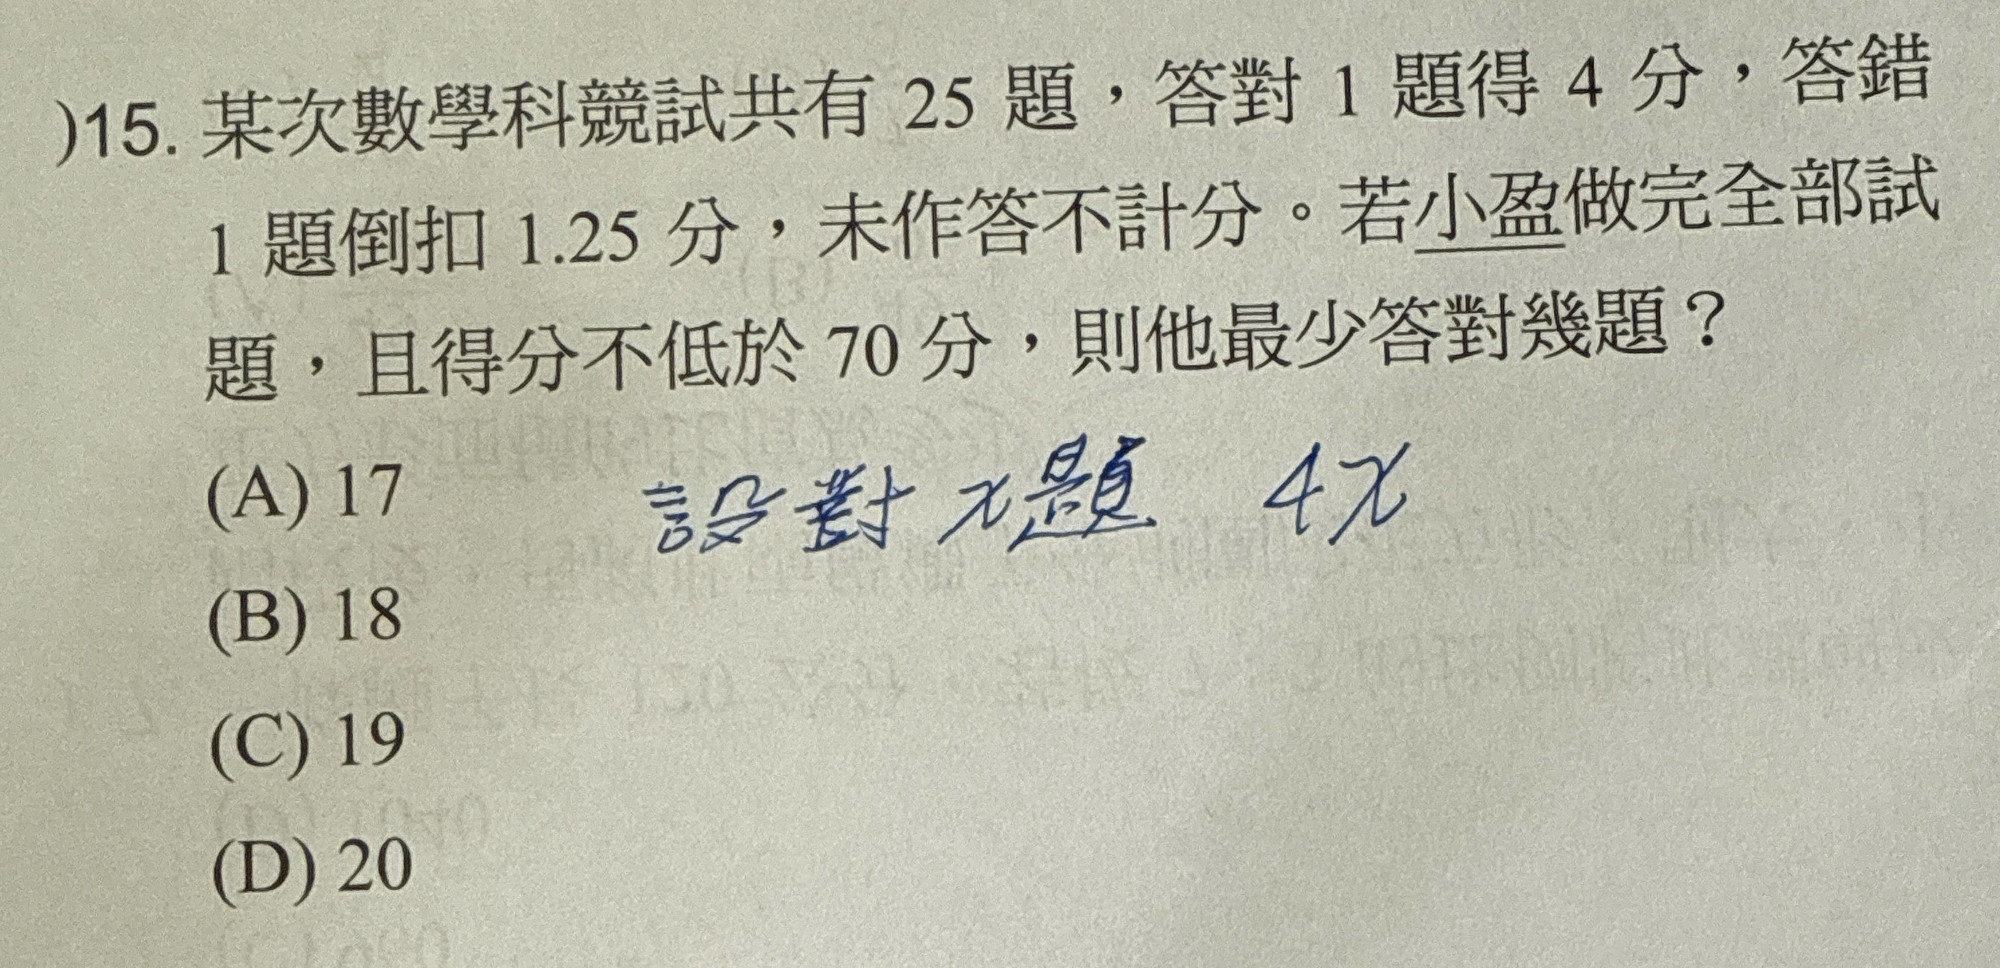 )15. 某次數學科競試共有 25 題，答對 1 題得 4 分，答錯
1 題倒扣 1.25 分，未作答不計分。若小盈做完全部試
題，且得分不低於 70 分，則他最少答對幾題？
(A) 17
設對 x題 4x
(B) 18
(C) 19
(D) 20